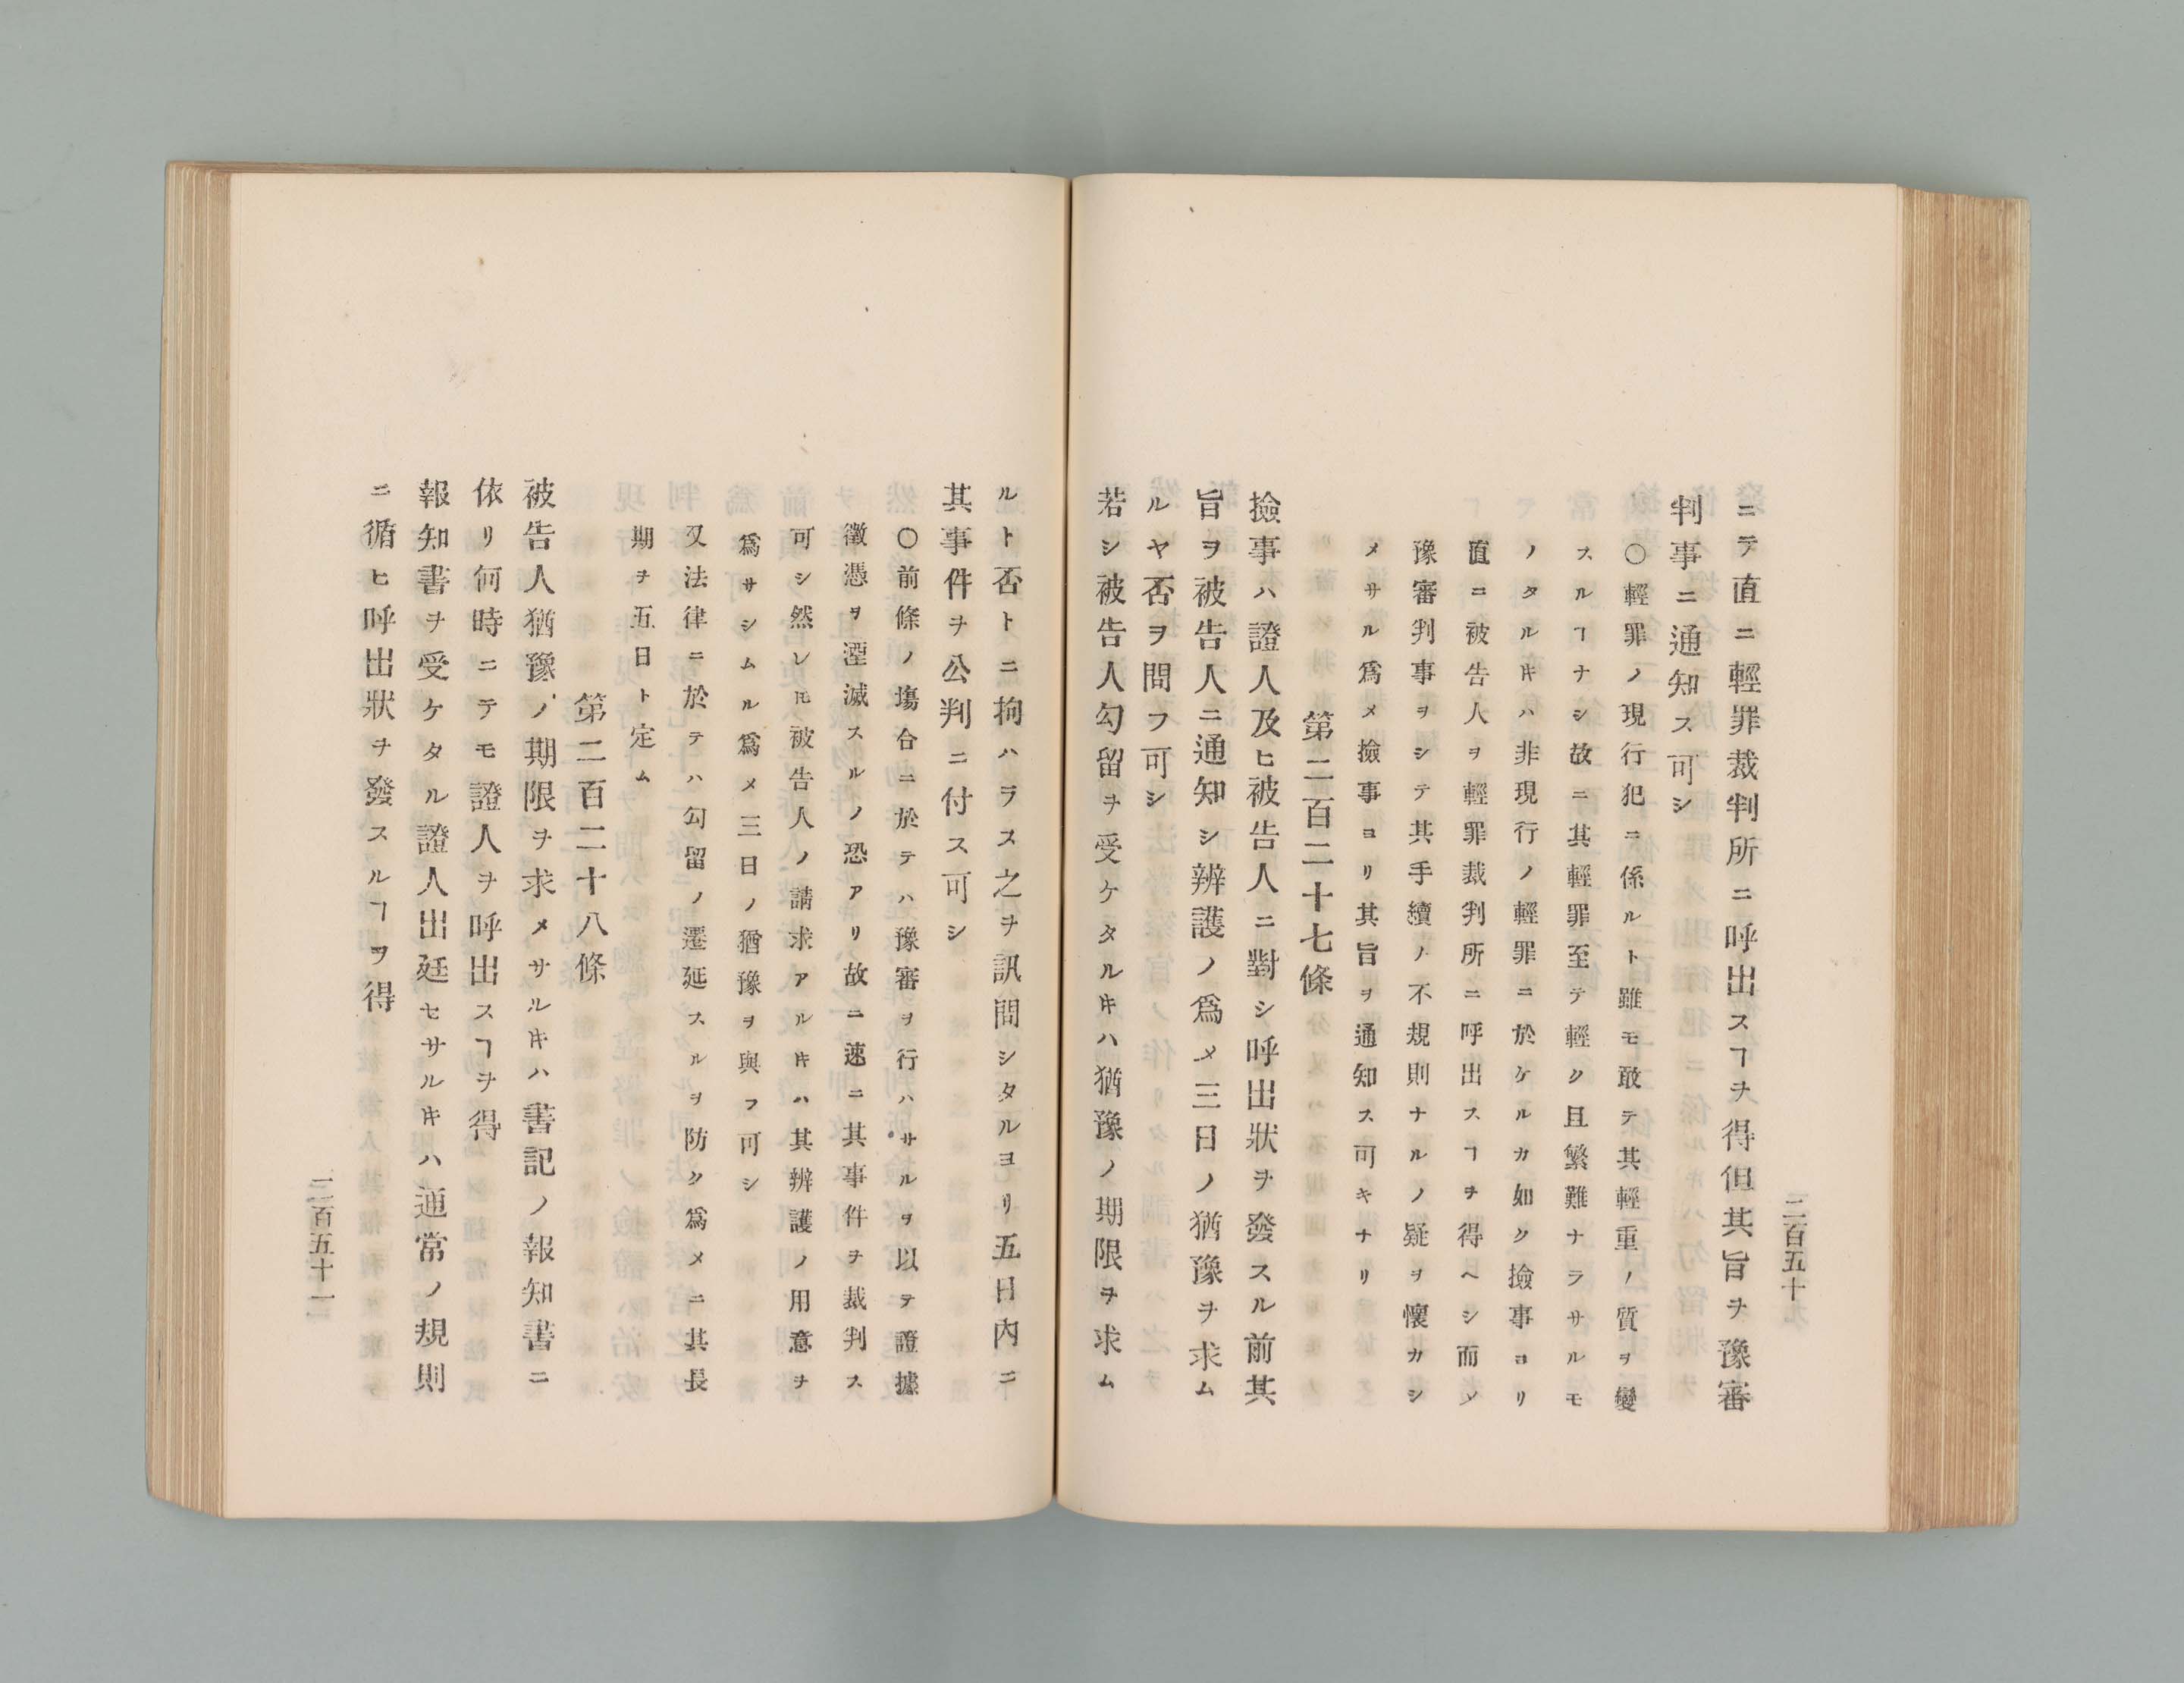 ニテ直ニ輕罪裁判所ニ呼出スヿヲ得但其旨ヲ豫審
判事ニ通知ス可シ
○輕罪ノ現行犯ニ係ルト雖モ敢テ其輕重ノ質ヲ變
スルヿナシ故ニ其輕罪至テ輕ク且繁難ナラサルモ
ノタルキハ非現行ノ輕罪ニ於ケルカ如ク撿事ヨリ
直ニ被告人ヲ輕罪裁判所ニ呼出スヿヲ得ヘシ而メ
豫審判事ヲシテ其手續ノ不規則ナルノ疑ヲ懷カシ
メサル爲メ撿事ヨリ其旨ヲ通知ス可キナリ
第二百二十七條
撿事ハ證人及ヒ被告人ニ對シ呼出狀ヲ發スル前其
旨ヲ被告人ニ通知シ辨護ノ爲メ三日ノ猶豫ヲ求ム
ルヤ否ヲ問フ可シ
若シ被告人勾留ヲ受ケタルキハ猶豫ノ期限ヲ求ム
二百五十
ルト否トニ拘ハラス之ヲ訊問シタルヨリ五日內ニ
其事件ヲ公判ニ付ス可シ
○前條ノ塲合ニ於テハ豫審ヲ行ハサルヲ以テ證據
徵憑ヲ湮滅スルノ恐アリ故ニ速ニ其事件ヲ裁判ス
可シ然レ𪜈被告人ノ請求アルキハ其辨護ノ用意ヲ
爲サシムル爲メ三日ノ猶豫ヲ與フ可シ
又法律ニ於テハ勾留ノ遷延スルヲ防ク爲メニ其長
期ヲ五日ト定ム
第二百二十八條
被告人猶豫ノ期限ヲ求メサルキハ書記ノ報知書ニ
依リ何時ニテモ證人ヲ呼出スヿヲ得
報知書ヲ受ケタル證人出廷セサルキハ通常ノ規則
ニ循ヒ呼出狀ヲ發スルヿヲ得
二百五十一